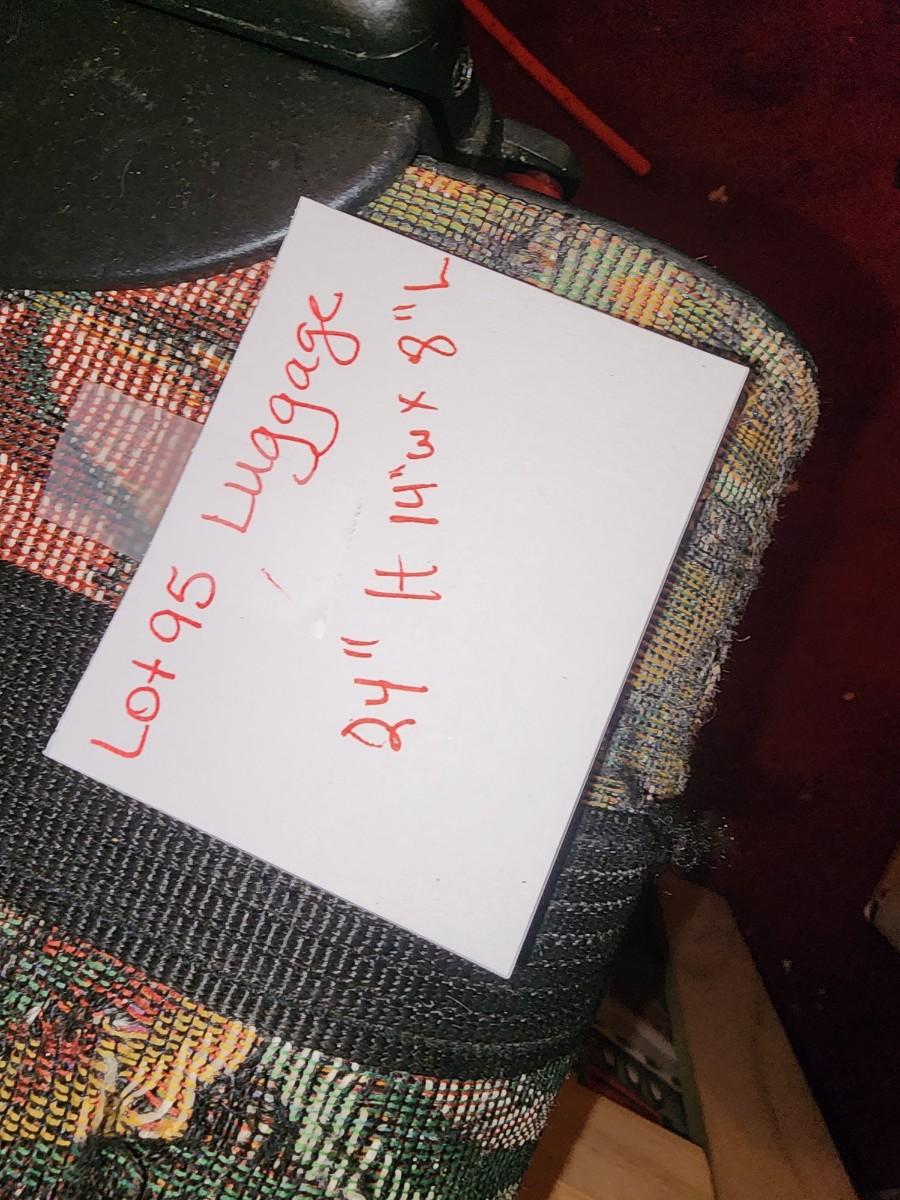 Lot 95 Luggage
24" H 14"w x 8"L